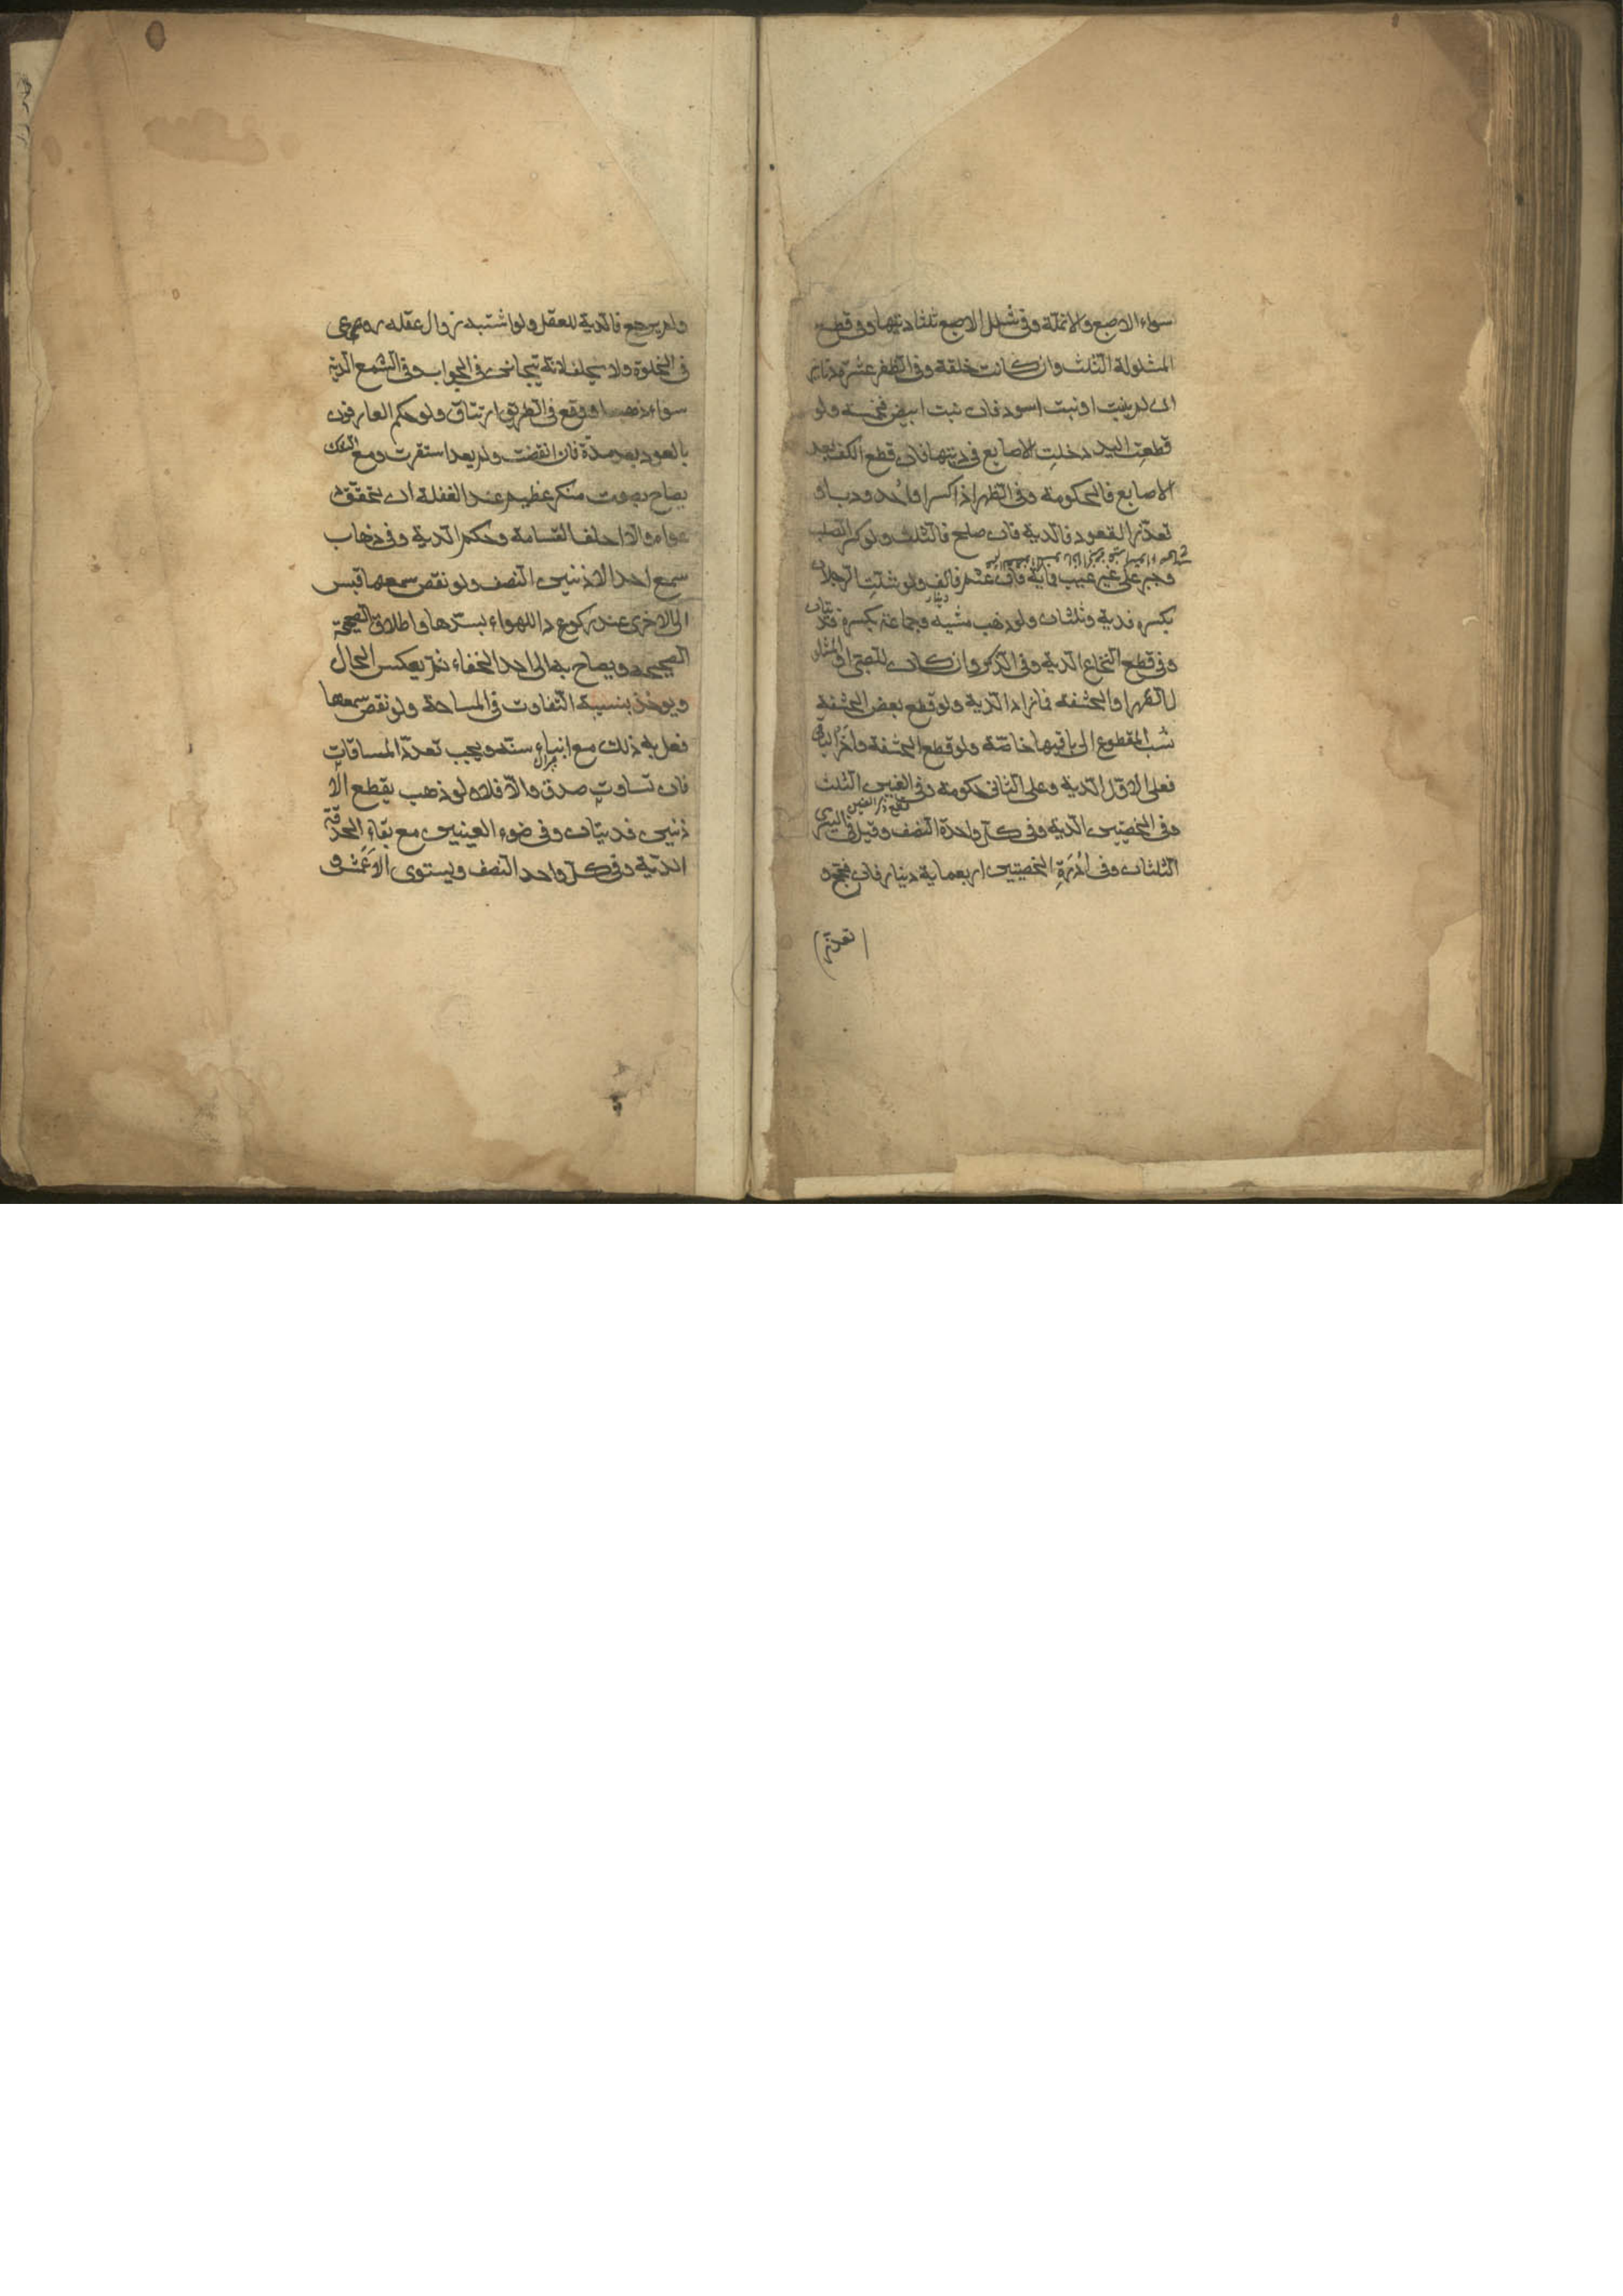 سواء الاصبع والانملة وفی شلل الاصبع ثلثا دیتها وفی قطع
المشلولة الثلث وان کانت خلقة وفی الظفر عشرة دنانیر
ان لم ینبت او نبت اسود فان نبت ابیض فخمسة ولو
قطعت الید دخلت الاصابع فی دیتها فان قطع الکف بعد
الاصابع فالحکومة وفی الظهر اذا کسر او احدودب او
تعذر القعود فالدیة فان صلح فالثلث ولو کسر الصلب
فجبر علی غیر عیب فمایة فان عثم فالف ولو شلت الرجلان
دینار
بکسره فدیة وثلثان ولو ذهب مشیه وجماعه بکسره فدیتان
وفی قطع النخاع الدیة وفی الذکر وان کان للصبی او المشلول
او الحشفه فما زاد الدیة ولو قطع بعض الحشفة
نسب المقطوع الی باقیها خاصّة ولو قطع الحشفة وآخر الباقی
فعلی الاول الدیة وعلی الثانی حکومة وفی العنین الثلث
قطع ذکر العنین
وفی الخصیتین الدیة وفی کل واحدة النصف وقیل فی الیسری
الثلثان وفی اُدْرَةِ الخصیتین اربعمایة دینار فان فحج و
تعذر
ولم یرجع فالدیة للعقل ولو اشتبه زوال عقله روعی
فی الخلوة ولا یحلف لانه یتجانن فی الجواب وفی السمع الدیة
سواء ذهب او وقع فی الطریق ارتتاق ولو حکم العارفون
بالعود بعد مدة فان انقضت ولم یعد استقرت ومع الشک
یصاح بصوت منکر عظیم عند الغفلة ان تحقق
دعواه والا احلف القسامة وحکم الدیة وفی ذهاب
سمع احد الاذنین النصف ولو نقص سمعها قیس
الی الاخری عند رکود الهواء بسدها واطلاق الصحیحة
الصحیحه ویصاح به الی احد الخفاء ثم یعکس الحال
ویوخذ بنسبة التفاوت فی المساحة ولو نقص سمعهما
فعل به ذلک مع ابناء سنه ویجب تعدد المسافات
فان تساوت صدق والا فلا ولو ذهب بقطع الا
ذنین فدیتان وفی ضوء العینین مع بقاء الحدقة
الدیة وفی کل واحد النصف ویستوی الاعمش و